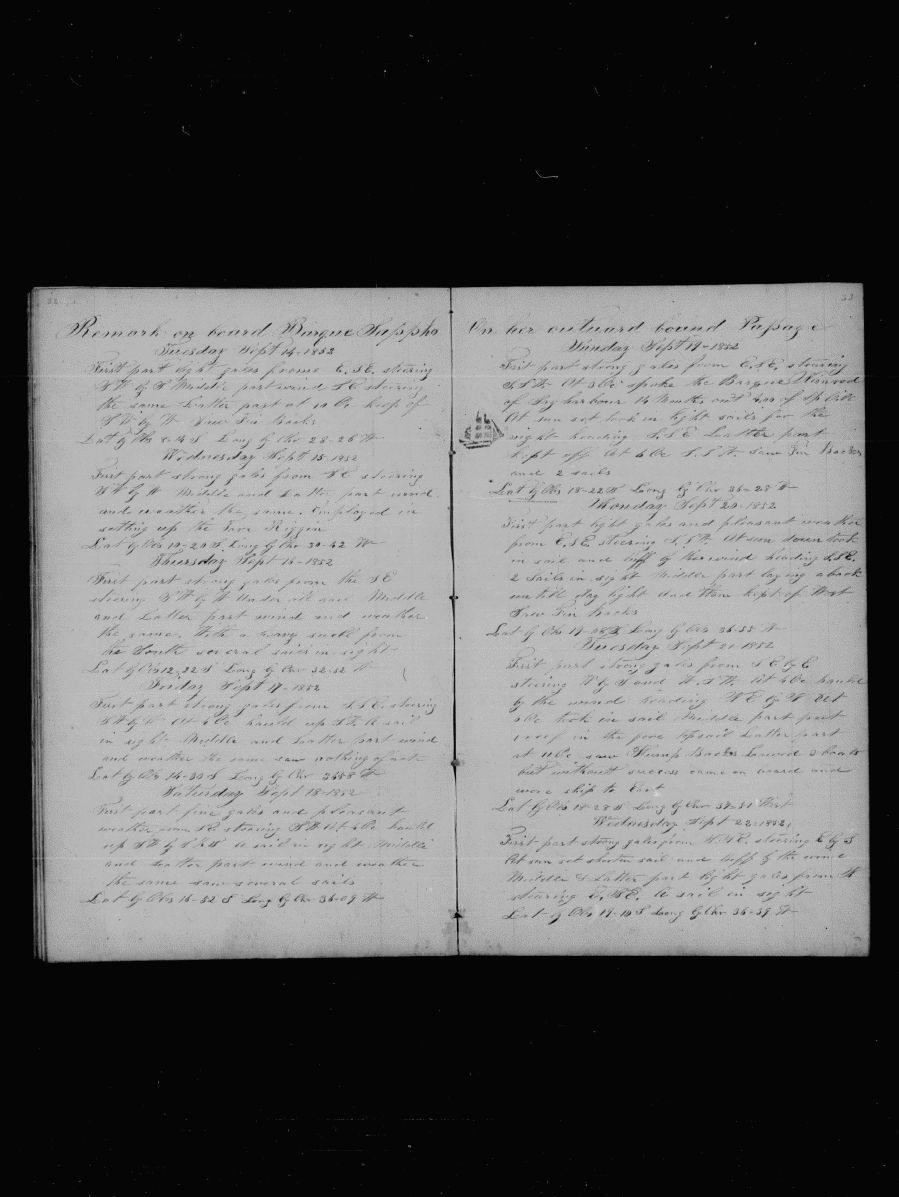 32
Remark on board Barque Sappho
Tuesday Sept 14-1852
First part light gales from E. SE. steering
SW by S Middle part wind SE steering
the same Latter part at 10 Oc keep of
SW by W Saw Fin Backs
Lat by Obs S Long by Chr 28-26 W
Wednesday Sept 15-1852
First part strong gales from SE steering
SW by W Middle and Latter part wind
and weather the same. Employed in
setting up the Fore Riggin
Lat by Obs 10-20 S Long by Chr 30-42 W
Thursday Sept 16-1852
First part strong gales from the SE
steering SW by W Under all sail Middle
and Latter part wind and weather
the same. With a heavy swell from
the South several sails in sight
Lat by Obs 12-32 S Long by Chr 32-52 W
Friday Sept 17-1852
First part strong gales from S.S.E. steering
SW by W At 4 Oc hauld up SW. A sail
in sight Middle and Latter part wind
and weather the same saw nothing of note
Lat by Obs 14-30 S Long by Chr 3458 W
Saturday Sept 18-1852
First part fine gales and pleasant
weather from SE steering SW At 4 Oc hauled
up SW by S A sail in sight Middle
and Latter part wind and weather
the same saw several sails
Lat by Obs 16-52 S Long by Chr 36-09 W
33
On her outward bound Passage
Sunday Sept 19-1852
First part strong gales from E,SE, steering
S,SW. At 3 Oc spoke the Barque
of Sag harbour 14 Months out 400 of Sp Oile
At sun set took in light sails for the
night heading S,SE Latter part
kept off At 6 Oc S.S.W. saw Fin Backs
and 2 sails
Lat by Obs 18-22 S Long by Chr 36-28 W
Monday Sept 20-1852
First part light gales and pleasant weather
from E,SE steering S,SW. At sun down took
in sail and luff by the wind heading S,SE.
2 Sails in sight Middle part laying aback
untill day light and then kept of West
Saw Fin Backs
Lat by Obs 19-08 S Long by Chr 36-55 W
Tuesday Sept 21-1852
First part strong gales from SE by E
steering W by S and W.SW. At 4 Oc hauld
by the wind heading NE by N At
6 Oc took in sail Middle part put
1 reef in the fore topsail Latter part
at 11 Oc saw Hump Backs Lowerd 3 boats
but without success came on board and
wore ship to East
Lat by Obs 18-28 S Long by Chr 37-31 West
Wednesday Sept 22-1852,
First part strong gales from N.NE. steering E by S
At sun set shorten sail and luff by the wind
Middle & Latter part light gales from N
steering E,NE. A sail in sight
Lat by Obs 19-10 S Long by Chr 36-39 W